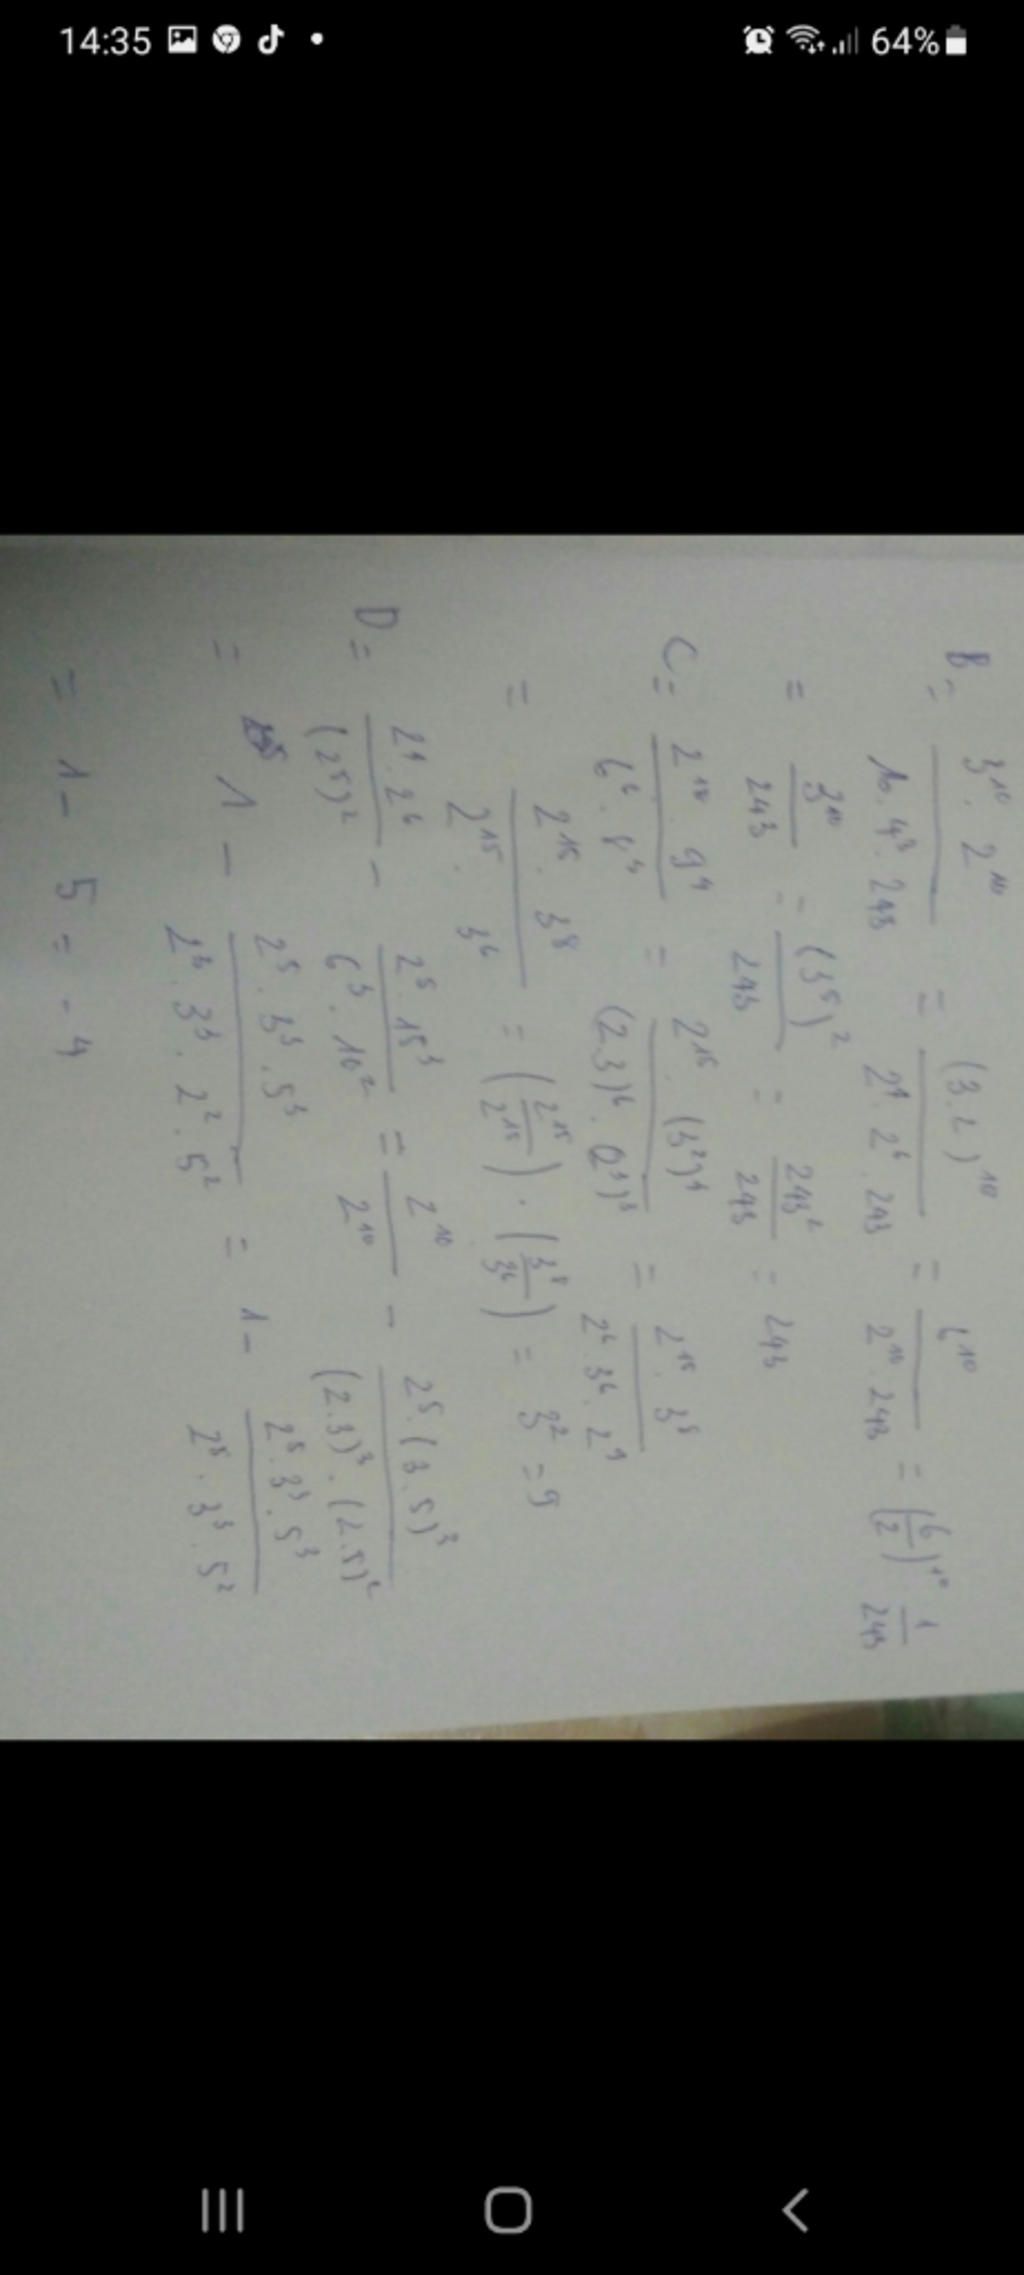 14:35
64%
B = \frac{3^{10} . 2^{10}}{16 . 4^3 . 243} = \frac{(3.2)^{10}}{2^4 . 2^6 . 243} = \frac{6^{10}}{2^{10} . 243} = (\frac{6}{2})^{10} . \frac{1}{243}
= \frac{3^{10}}{243} = \frac{(3^5)^2}{243} = \frac{243^2}{243} = 243
C = \frac{2^{15} . 9^4}{6^6 . 8^3} = \frac{2^{15} . (3^2)^4}{(2.3)^6 . (2^3)^3} = \frac{2^{15} . 3^8}{2^6 . 3^6 . 2^9}
= \frac{2^{15} . 3^8}{2^{15} . 3^6} = (\frac{2^{15}}{2^{15}}) . (\frac{3^8}{3^6}) = 3^2 = 9
D = \frac{2^4 . 2^6}{(2^5)^2} - \frac{2^5 . 15^3}{6^3 . 10^2} = \frac{2^{10}}{2^{10}} - \frac{2^5 . (3.5)^3}{(2.3)^3 . (2.5)^2}
= 1 - \frac{2^5 . 3^3 . 5^3}{2^3 . 3^3 . 2^2 . 5^2} = 1 - \frac{2^5 . 3^3 . 5^3}{2^5 . 3^3 . 5^2}
= 1 - 5 = - 4